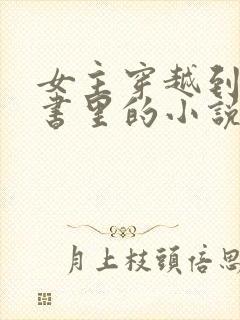 女主穿越到
书里的小说
月上枝頭倍思